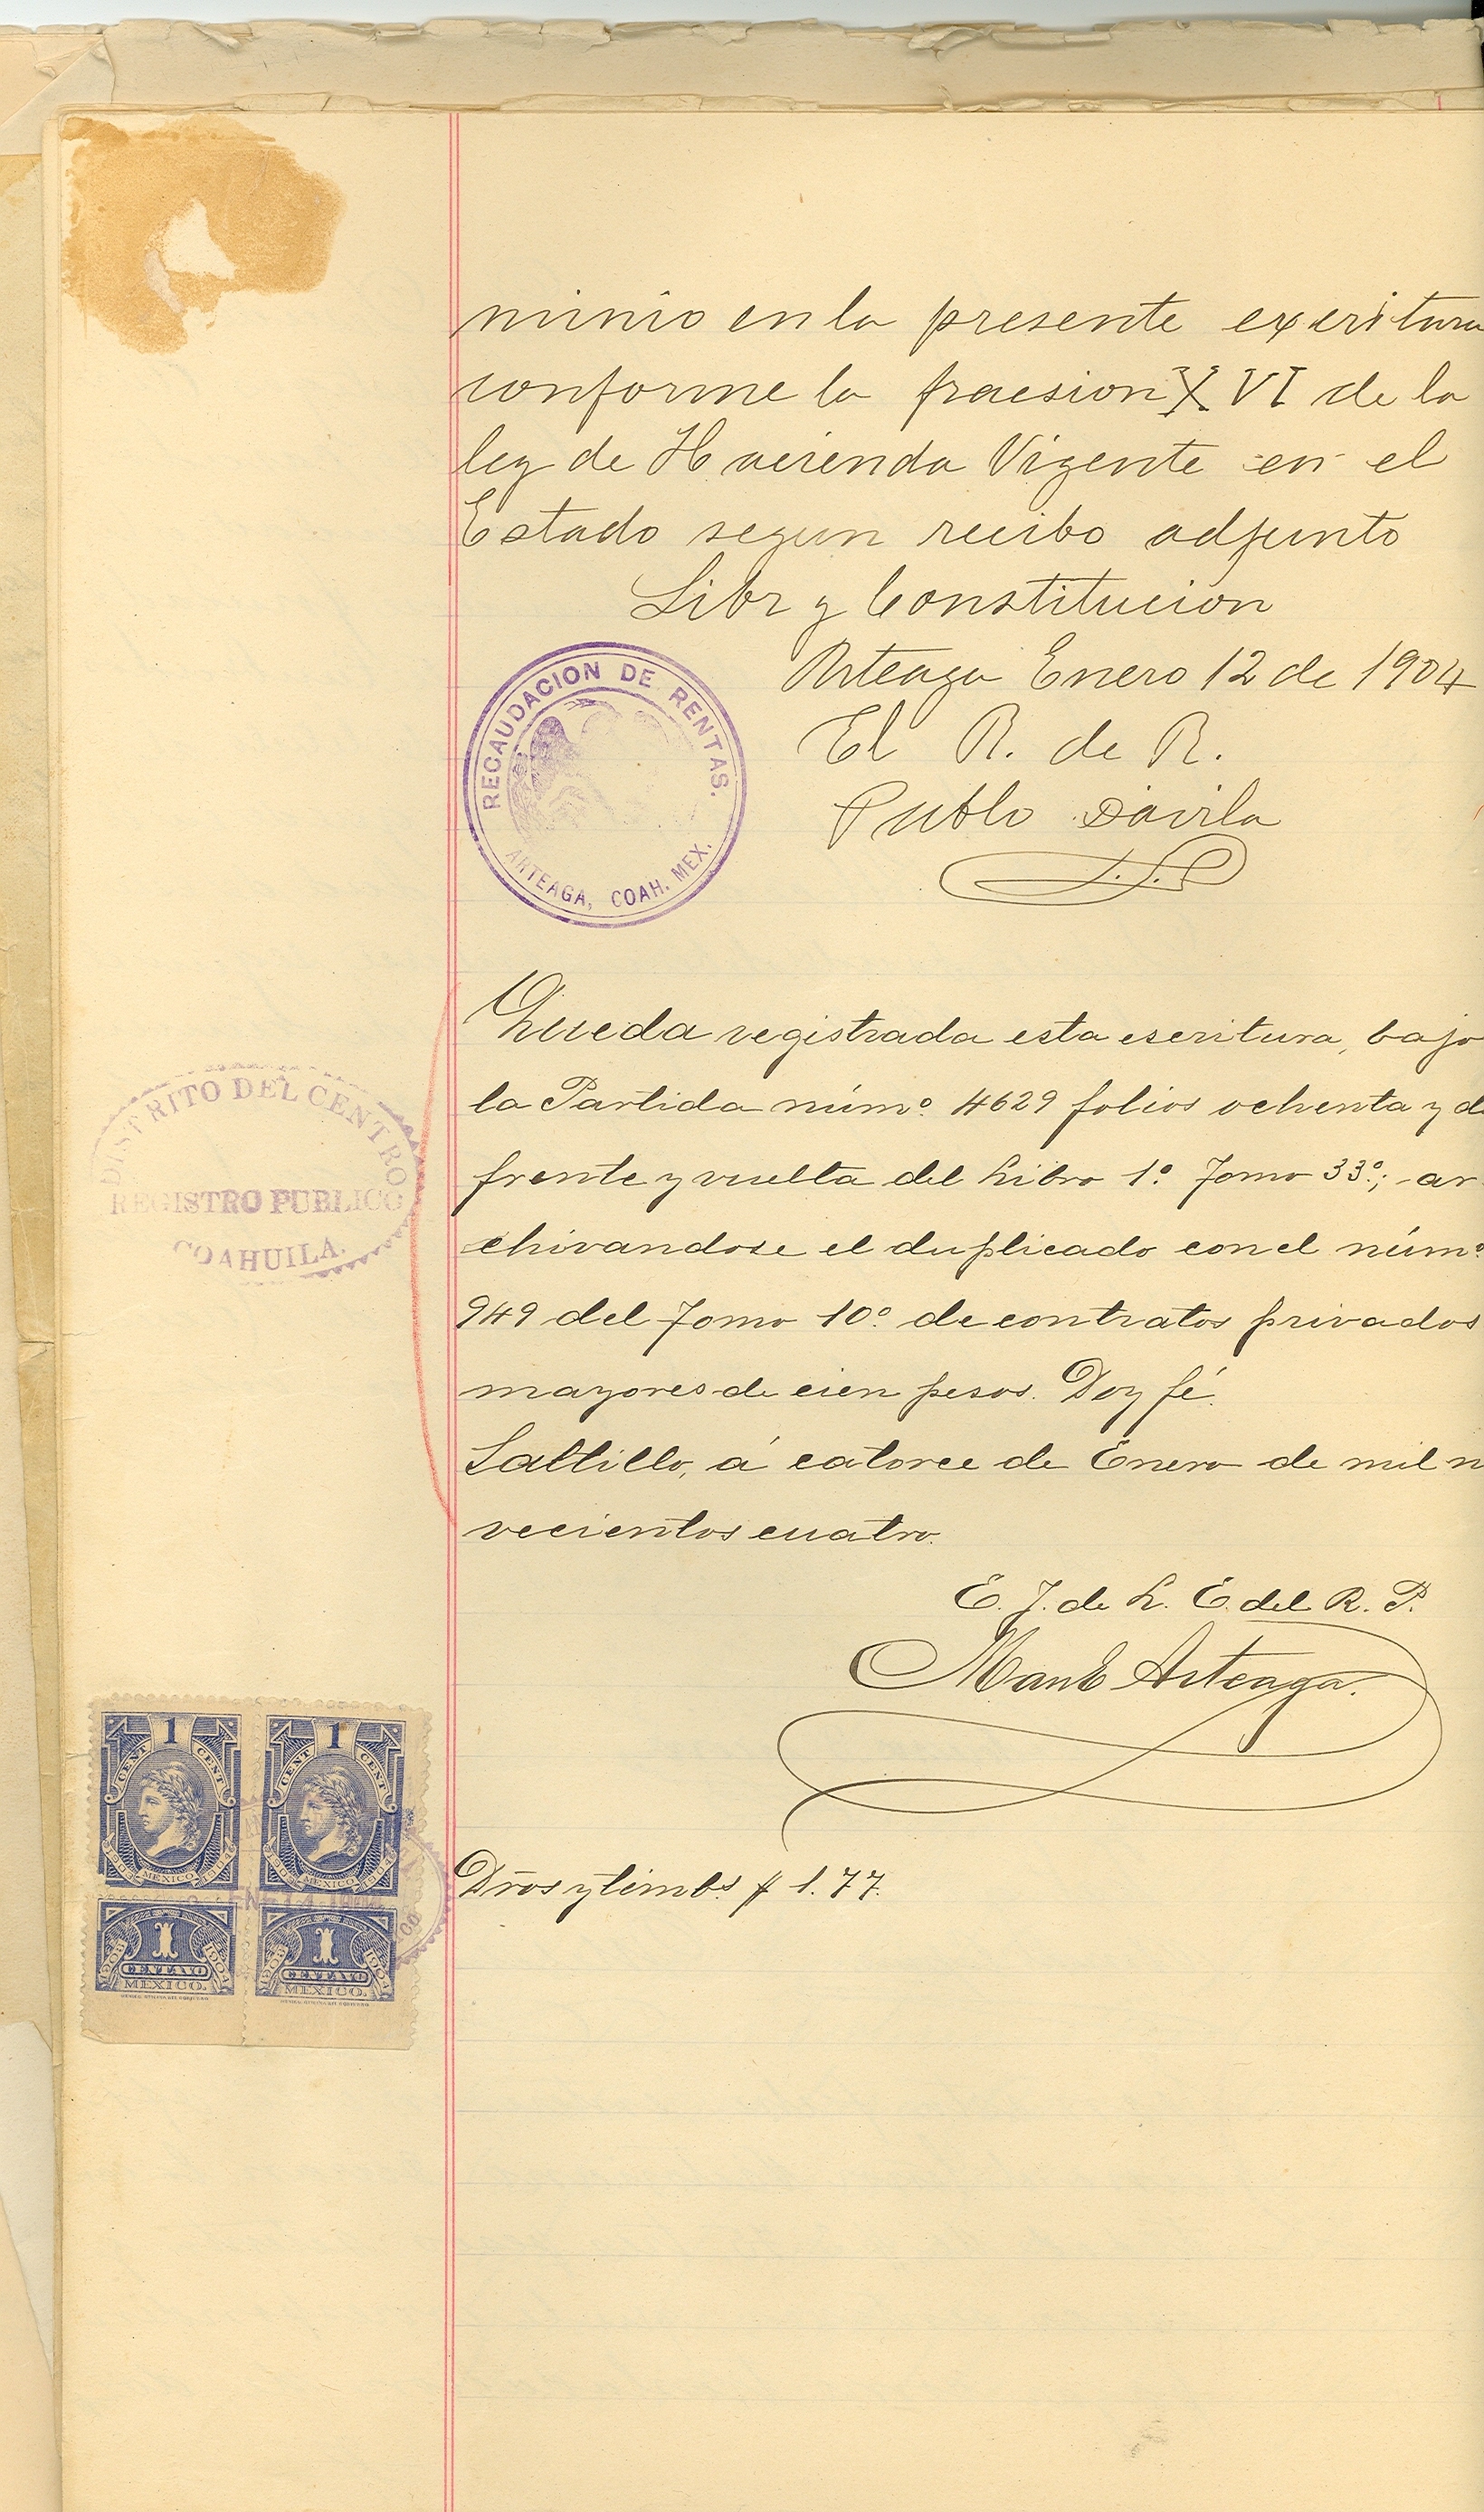 minio en la presente excritura
conforme la fraccsion XVI de la
ley de Hacienda Vigente en el
Estado segun recibo adjunto
Libr y Constitucion
Arteaga Enero 12 de 1904
El R. de R.
Pablo Dávila
RECAUDACION DE RENTAS.
ARTEAGA, COAH. MEX.
Queda registrada esta escritura, bajo
la Partida númº 4629 folios ochenta y d
frente y vuelta del Libro 1º Tomo 33º; ar
chivandose el duplicado con el númº
949 del Tomo 10º de contratos privados
mayores de cien pesos. Doy fé.
Saltillo, á catorce de Enero de mil n
vecientos cuatro.
DISTRITO DEL CENTRO
REGISTRO PUBLICO
COAHUILA.
E. J. de L. E. del R. P.
Manl Arteaga.
1 1
CENT CENT CENT CENT
1903 MEXICO 1904 1903 MEXICO 1904
ENE 14 1904
1 1
1903 CENTAVO 1904 1903 CENTAVO 1904
MEXICO. MEXICO.
Dros y timbs $ 1.77.